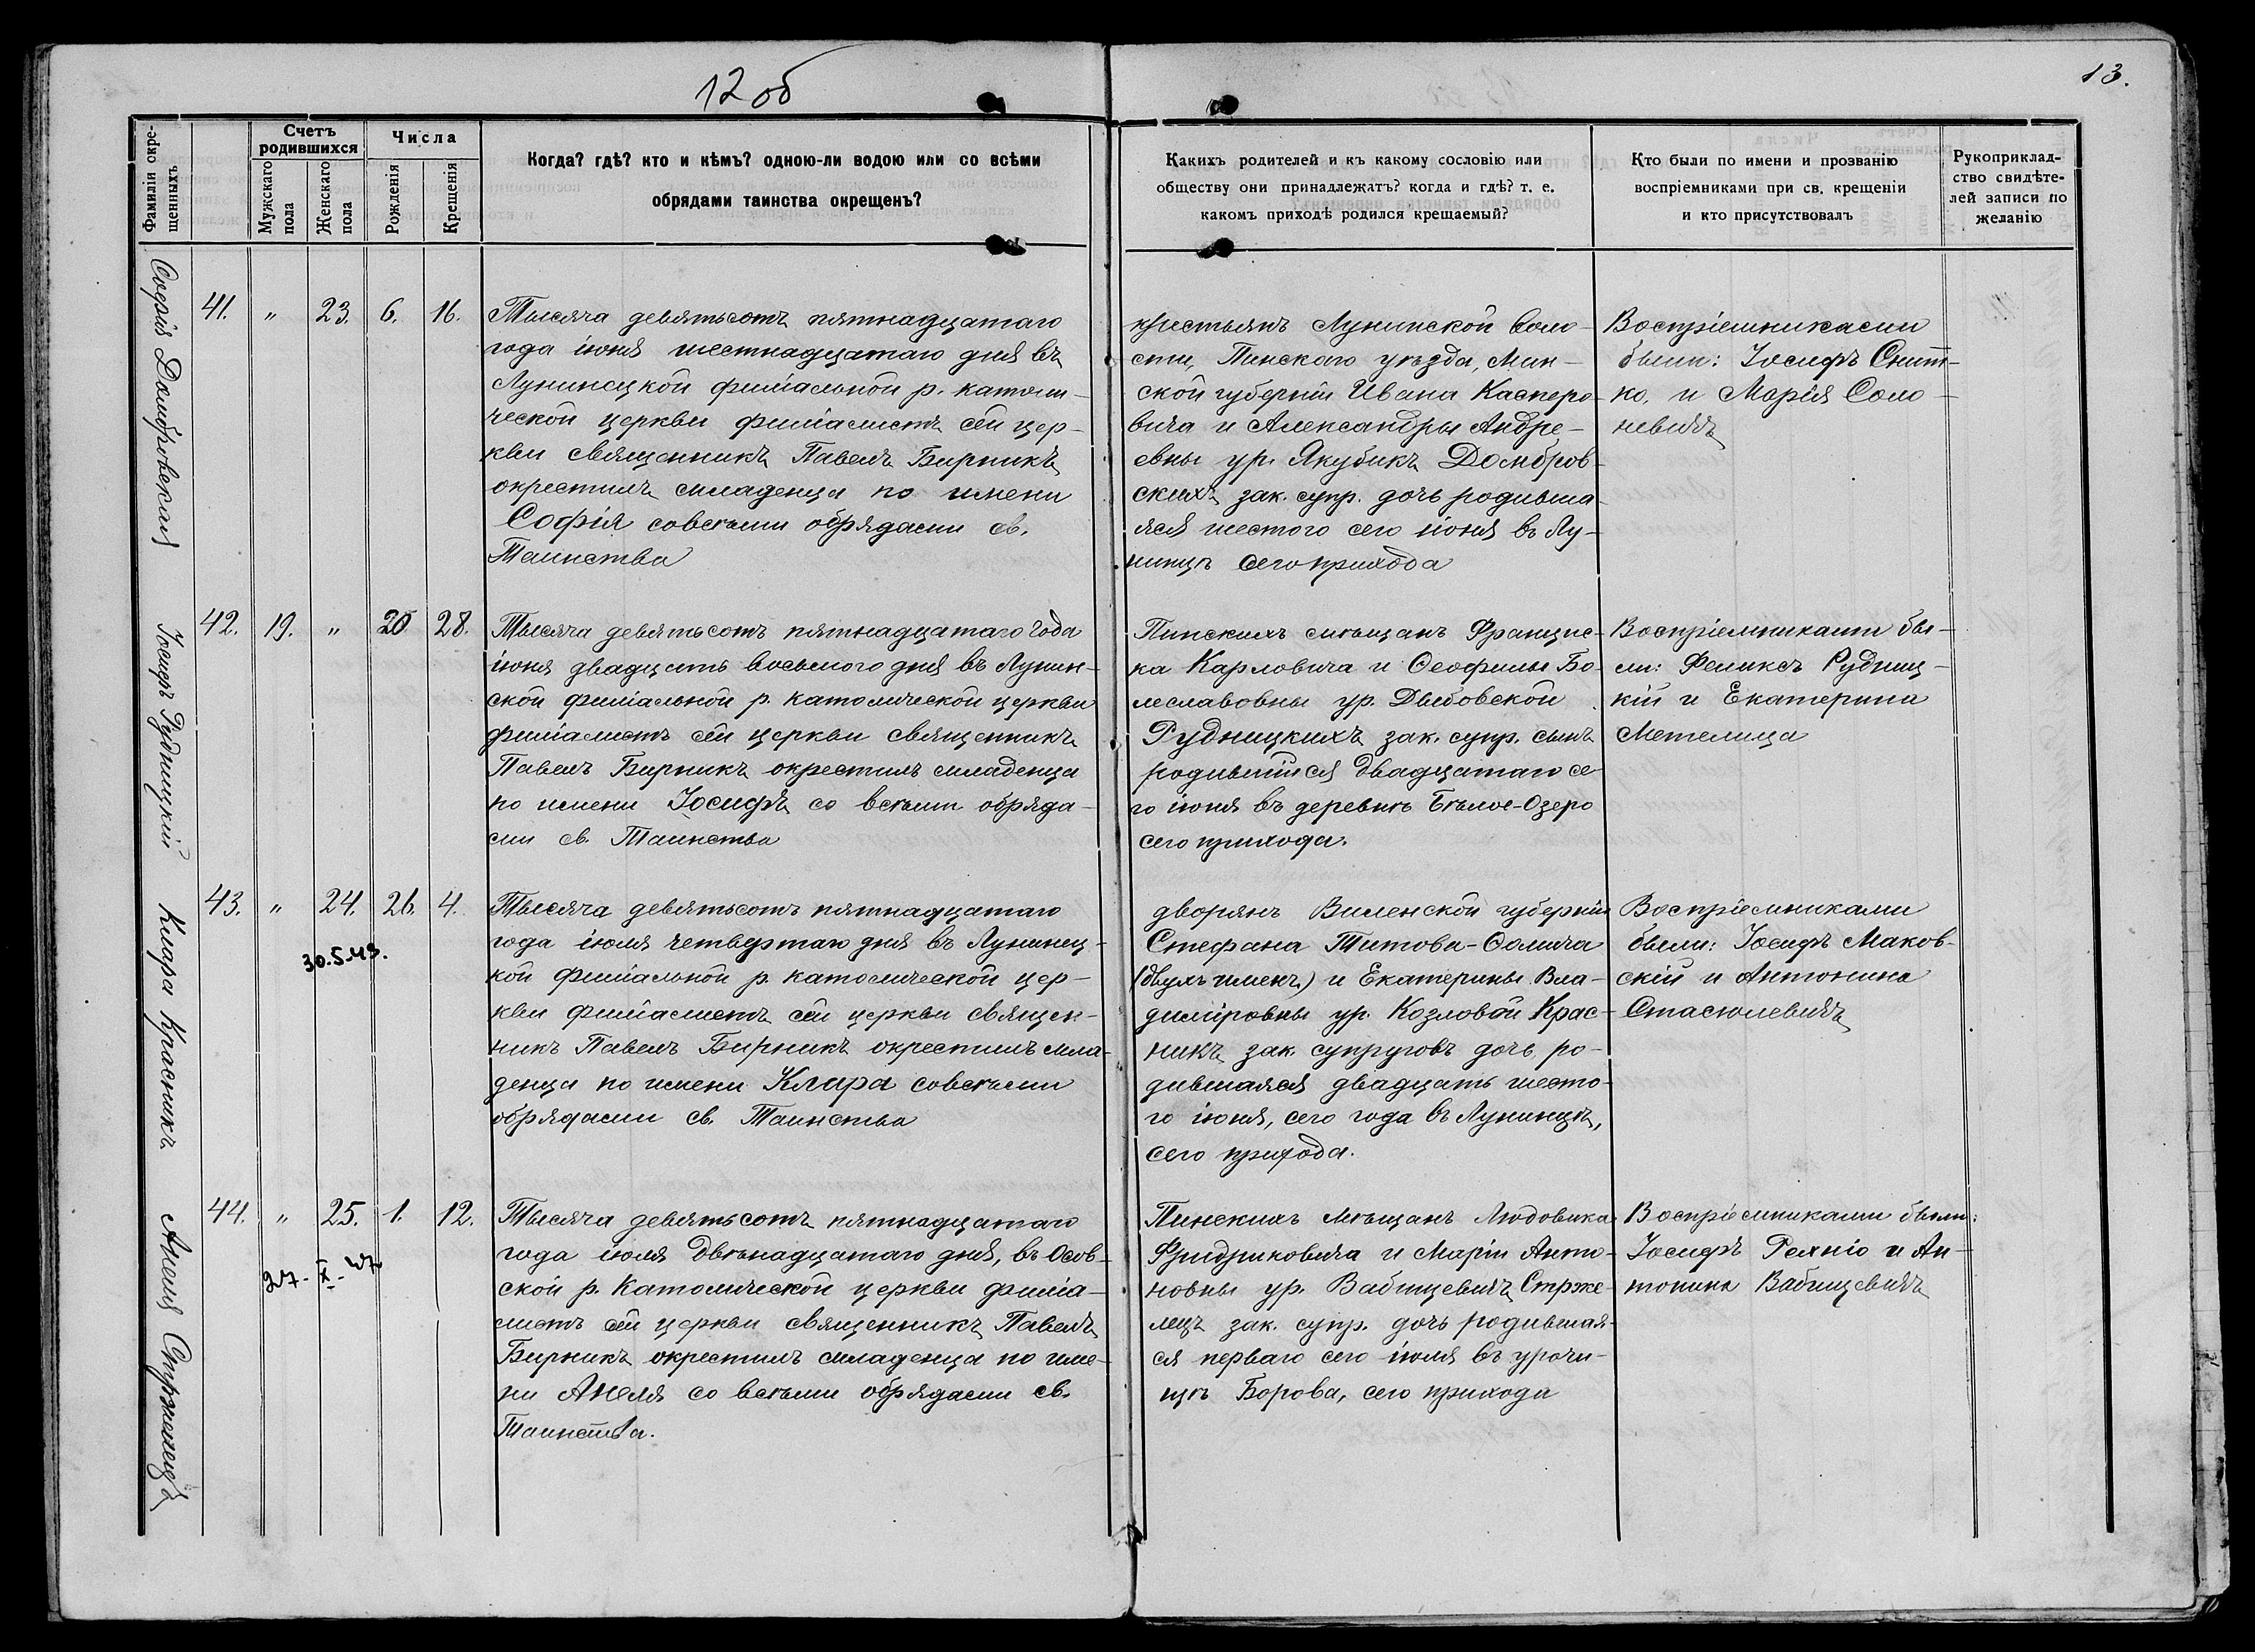 12 об
13.
Фамиліи окре-
щенныхъ
Счетъ
родившихся
Мужскаго
пола
Женскаго
пола
Числа
Рожденія
Крещенія
Когда? гдѣ? кто и кѣмъ? одною-ли водою или со всѣми
обрядами таинства окрещенъ?
Какихъ родителей и къ какому сословію или
обществу они принадлежатъ? когда и гдѣ? т. е.
какомъ приходѣ родился крещаемый?
Кто были по имени и прозванію
воспріемниками при св. крещеніи
и кто присутствовалъ
Рукоприклад-
ство свидѣте-
лей записи по
желанію
Софія Домбровская
41. " 23. 6. 16.
Тысяча девятьсотъ пятнадцатаго
года іюня шестнадцатаго дня въ
Лунинецкой филіальной р. католи-
ческой церкви филіалистъ сей цер-
кви священникъ Павелъ Бирникъ
окрестилъ младенца по имени
Софія совсѣми обрядами св.
Таинства
крестьянъ Лунинской воло-
сти, Пинскаго уѣзда, Мин-
ской губерніи Ивана Касперо-
вича и Александры Андре-
евны ур. Якубикъ Домбров-
скихъ зак. супр. дочь родивша-
яся шестого сего іюня въ Лу-
нинцѣ сего прихода
Воспріемниками
были: Іосифъ Снит-
ко, и Марія Соло-
невичъ
Іосифъ Рудницкій
42. 19. " 20 28.
Тысяча девятьсотъ пятнадцатаго года
іюня двадцать восьмого дня въ Лунин-
ской филіальной р. католической церкви
филіалистъ сей церкви священникъ
Павелъ Бирникъ окрестилъ младенца
по имени Іосифъ со всѣми обряда-
ми св. Таинства
Пинскихъ мѣщанъ Францис-
ка Карловича и Ѳеофилы Бо-
леславовны ур. Дыбовской
Рудницкихъ зак. супр. сынъ
родившійся двадцатаго се-
го іюня въ деревнѣ Бѣлое-Озеро
сего прихода.
Воспріемниками бы-
ли: Феликсъ Рудниц-
кій и Екатерина
Метелица
Клара Красникъ
43. " 24. 26. 4.
30.5.43.
Тысяча девятьсотъ пятнадцатаго
года іюля четвертаго дня въ Лунинец-
кой филіальной р. католической цер-
кви филіалистъ сей церкви священ-
никъ Павелъ Бирникъ окрестилъ мла-
денца по имени Клара совсѣми
обрядами св. Таинства
дворянъ Виленской губерніи
Стефана Титова-Ѳомича
(двухъ именъ) и Екатерины Вла-
диміровны ур. Козловой Крас-
никъ зак. супруговъ дочь ро-
дившаяся двадцать шесто-
го іюня, сего года въ Лунинцѣ,
сего прихода.
Воспріемниками
были: Іосифъ Маков-
скій и Антонина
Стасюлевичъ
Анеля Стржелецъ
44. " 25. 1. 12.
27-X-47
Тысяча девятьсотъ пятнадцатаго
года іюля двѣнадцатаго дня, въ Осов-
ской р. Католической церкви филіа-
листъ сей церкви священникъ Павелъ
Бирникъ окрестилъ младенца по име-
ни Анеля со всѣми обрядами св.
Таинства.
Пинскихъ мѣщанъ Людовика
Фридриковича и Маріи Анто-
новны ур. Вабищевичъ Стрже-
лецъ зак. супр. дочь родившая-
ся перваго сего іюля въ урочи-
щѣ Борова, сего прихода
Воспріемниками были:
Іосифъ и Ан-
тонина Вабищевичъ